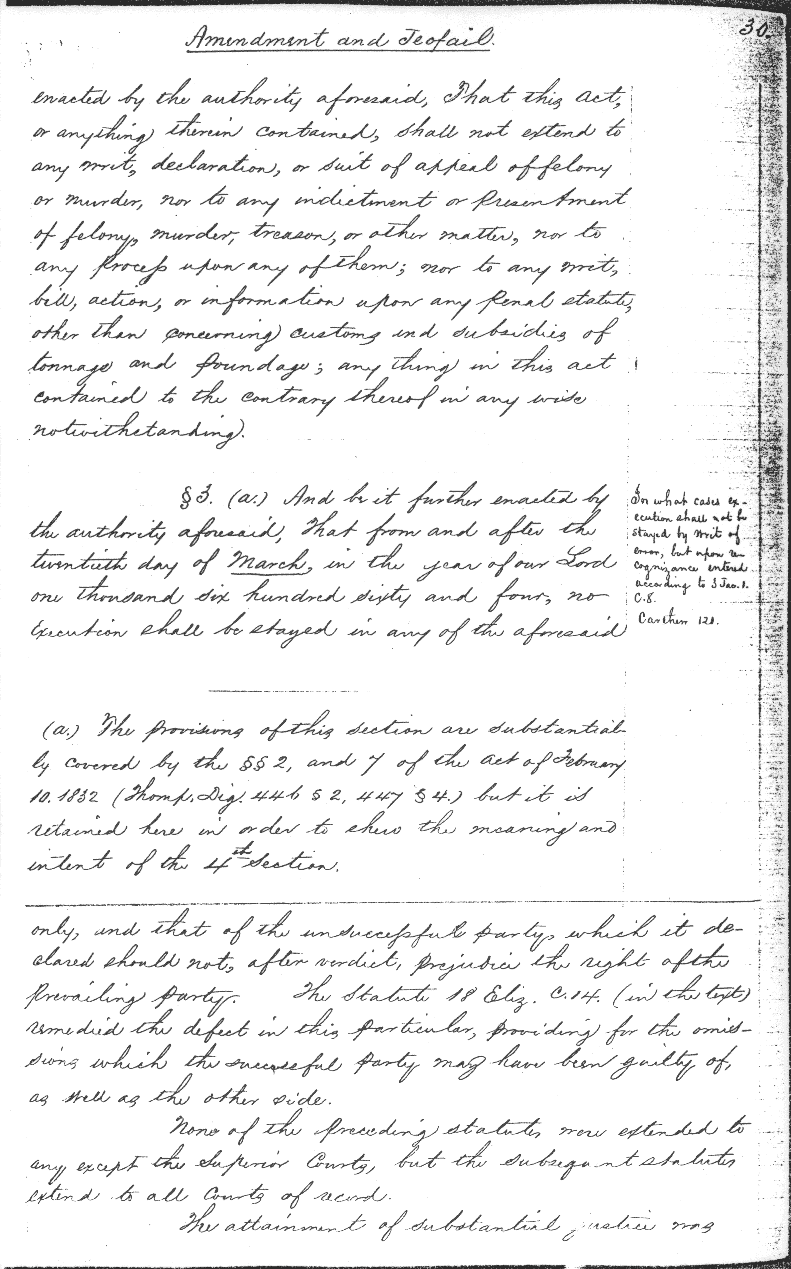 Amendment and Jeofail.
30.
enacted by the authority aforesaid, That this act,
or anything therein contained, shall not extend to
any writ, declaration, or suit of appeal of felony
or murder, nor to any indictment or Presentment
of felony, murder, treason, or other matter, nor to
any Process upon any of them; nor to any writ,
bill, action, or information upon any Penal statute,
other than concerning customs and subsidies of
tonnage and Poundage; any thing in this act
contained to the contrary thereof in any wise
notwithstanding.
§3. (a.) And be it further enacted by
the authority aforesaid, That from and after the
twentieth day of March, in the year of our Lord
one thousand six hundred sixty and four, no
Execution shall be stayed in any of the aforesaid
In what cases ex-
ecution shall not be
stayed by writ of
error, but upon re-
cognizance entered
according to 3 Jac. 1.
C.8.
Carthew 121.
(a.) The provisions of this section are substantial-
ly covered by the §§ 2, and 7 of the act of February
10. 1832 (Thomp. Dig. 446 § 2, 447 § 4.) but it is
retained here in order to shew the meaning and
intent of the 4th Section.
only, and that of the unsuccessful party, which it de-
clared should not, after verdict, prejudice the right of the
Prevailing Party. The Statute 18 Eliz. C. 14. (in the text)
remedied the defect in this Particular, providing for the omis-
sions which the successful Party may have been guilty of,
as well as the other side.
None of the Preceding statutes were extended to
any except the Superior Courts, but the subsequent statutes
extend to all Courts of record.
The attainment of substantial justice was